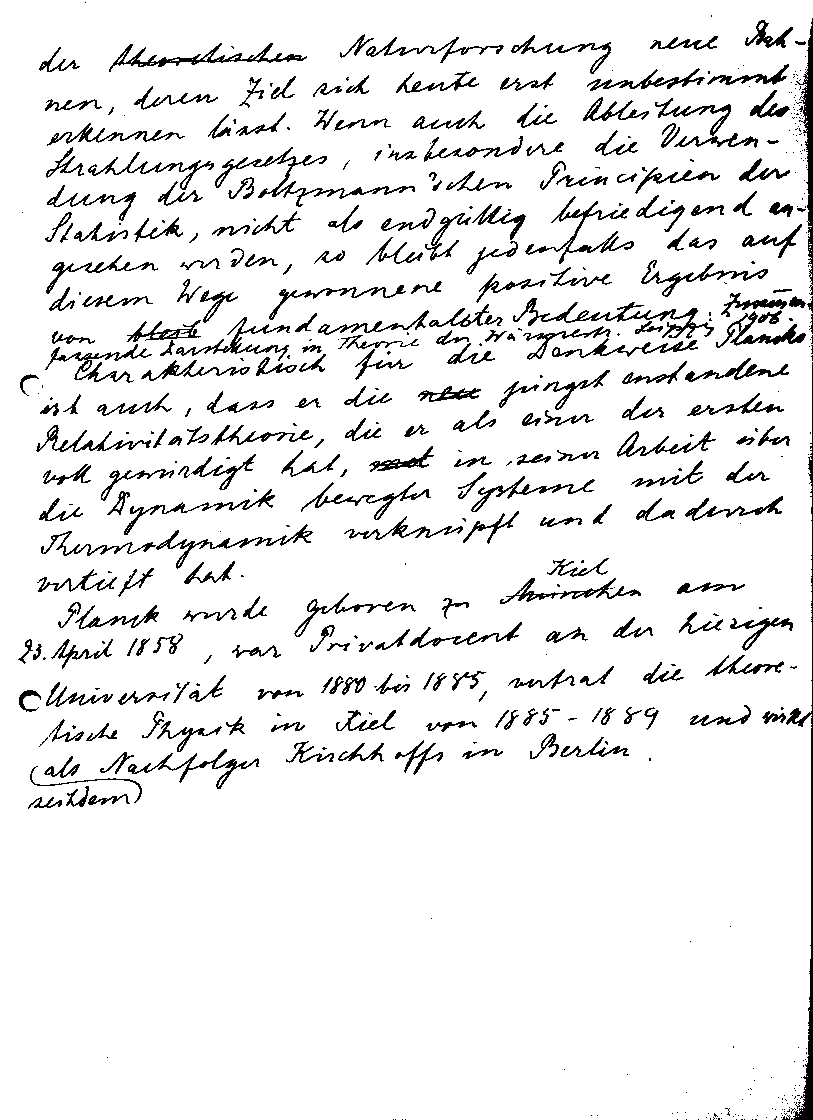 der theoretischen Naturforschung neue Bah-
nen, deren Ziel sich heute erst unbestimmt
erkennen lässt. Wenn auch die Ableitung des
Strahlungsgesetzes, insbesondere die Verwen-
dung der Boltzmann'schen Principien der
Statistik, nicht als endgültig befriedigend an-
gesehen werden, so bleibt jedenfalls das auf
diesem Wege gewonnene positive Ergebnis
von bloss fundamentalster Bedeutung. Zusammen-
fassende Darstellung in Theorie der Wärmestr. Leipzig 1906.
Charakteristisch für die Denkweise Plancks
ist auch, dass er die neue jüngst enstandene
Relativitätstheorie, die er als einer der ersten
voll gewürdigt hat, mit in seiner Arbeit über
die Dynamik bewegter Systeme mit der
Thermodynamik verknüpft und dadurch
vertieft hat.
Kiel
Planck wurde geboren zu München am
23. April 1858, war Privatdocent an der hiesigen
Universität von 1880 bis 1885, vertrat die theore-
tische Physik in Kiel von 1885-1889 und wirkt
als Nachfolger Kirchhoffs in Berlin.
seitdem